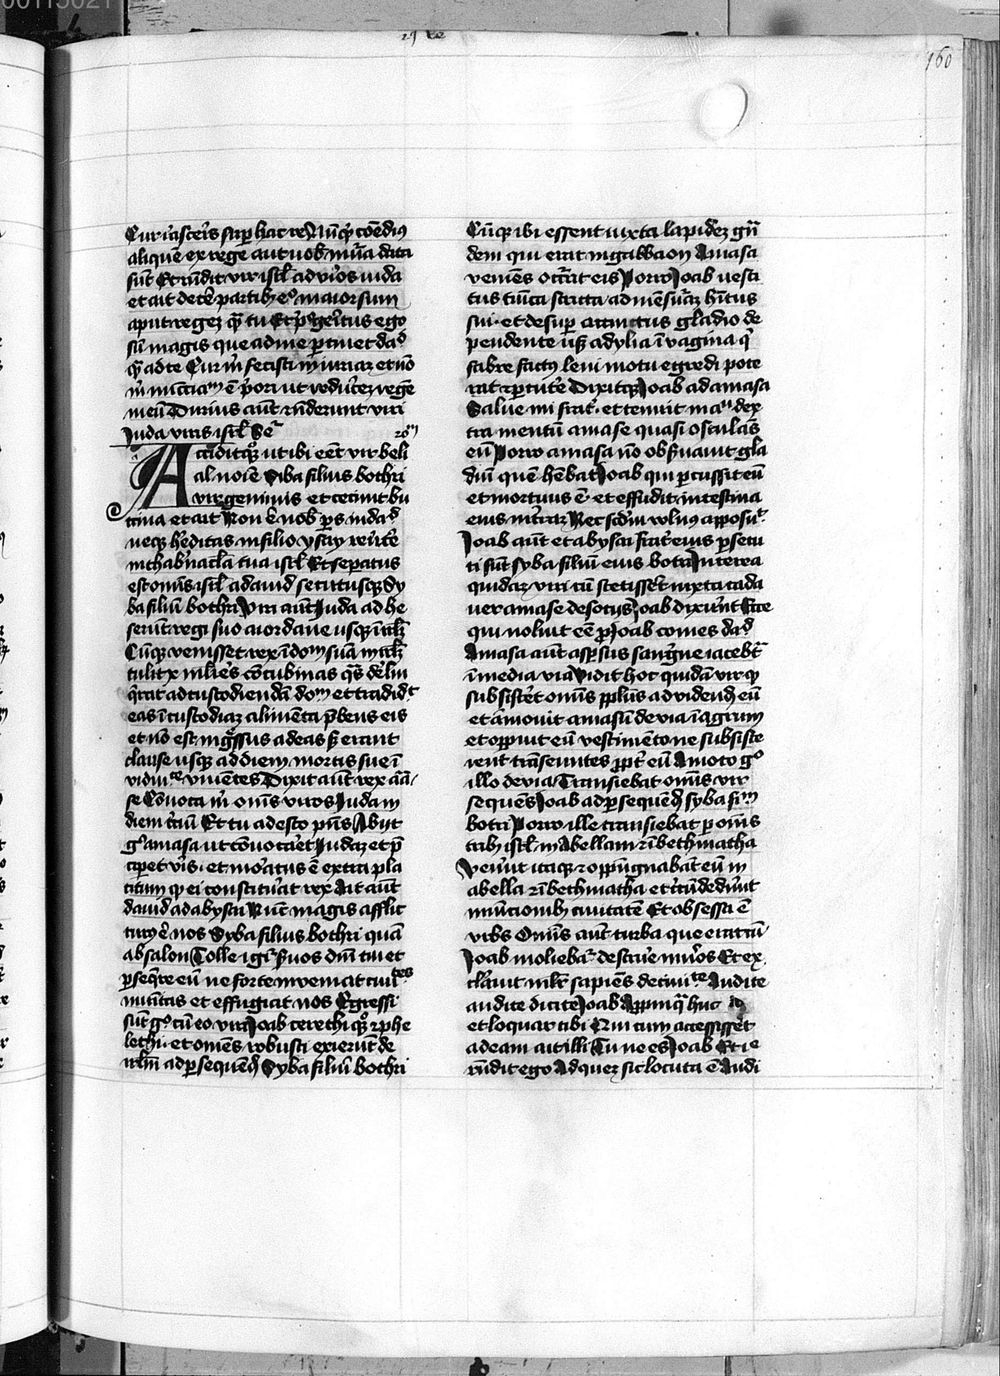 160
Cur irascer̄s sup̲ hac re Nūq̲ꝫ cōediꝰ
aliquē ex rege aut nob̄ mūa data
sūt Et rn̄dit vir isrl̄ ad viros iuda
et ait decē partibꝫ eᵒ maior sum
aput regeꝫ q̄ tu Et p̄ᵗgeītus ego
sū magis que ad me p̲tinet daᵈ
q̄ ad te Cur m̄ fecisti iniuriaꝫ et nō
m̄ nūciaᵐ ē p̄ori ut reduceꝫ regē
meū Durius aūt rn̄derunt viri
Juda viris isrl̄ Se͛
20ᵐ
Acciditqꝫ ut ibi eēt vir beli
al noīe Siba filius bothri
vir geminius et cecinit bu
ccina et ait Non ē nob̄ p̲s in daᵈ
neqꝫ h̄editas in filio ysay reūte
in thab̄nacl̄a tua isrl̄ Et sep̲atus
est oīs isrl̄ a dauid secutusqꝫ Sy
ba filiū bothri Viri aūt Juda adhe
serūt regi suo a iordane usqꝫ irlm̄
Cūqꝫ venisset rex ī domū suā in irlm̄
tulit x mlīes cōcubinas q̄s deliq̄
rat ad custodiendā domᵐ et tradidᵗ
eas ī custodiaꝫ alimēta p̄bens eis
et nō est ingr̄ssus ad eas sꝫ erant
clause usqꝫ ad diem mortis sue ī
viduiᵗᵉ viuētes Dixit aūt rex ama
se Cōuoca m̄ om̄s viros Juda in
diem t̄ciū Et tu adesto p̄ns Abijt
gᵒ amasa ut cōuocaret Judaꝫ et p̄
cip̲et vis et moratus ē extra pla
citum qd̄ ei constituerat rex Ait aūt
dauid ad abysai Nūc magis afflic
turꝰ ē nos Syba filius bothri quā
absalon Tolle igᵗ suos dn̄i tui et
p̲seqre eū ne forte inueniat ciuiᵗᵉˢ
munitas et effugiat nos Egressi
sūt gᵒ cū eo viri Joab cerethi qꝫ ⁊ phe
lethi et omēs robusti exierūt de
irlm̄ ad p̲sequēdū Syba filiū bothri
Cūqꝫ ibi essent iuxta lapideꝫ gn̄
dem qui erat in gabbaon Amasa
veniēs occ̄rit eis Porro Joab vesti
tus tūica stricta ad mēsuraꝫ h̄itus
sui et desup̲ accinctus gladio de
pendente usqꝫ ad ylia ī vagina q̄
fabre factꝰ leui motu egredi pote
rat ⁊ p̲cutē Dixitqꝫ Joab ad amasa
Salue mi frat̄ et tenuit maᵘ dex
tra mentū amase quasi osculās
eū Porro amasa nō obs̄uauit gla
diū quē hēbat Joab qui p̲cussit eū
et mortuus ē et effudit intestina
eius in trāꝫ Nec scd̄m vulnꝰ apposuᵗ
Joab aūt et abysai frat̄ eius p̲secu
ti sūt syba filium eius botri Interea
quidaꝫ viri cū stetissēt iuxta cada
uer amase de socijs Joab dixerūt Ecce
qui voluit eē p̲ Joab comes daᵈ
Amasa aūt asp̲sus sangⁱne iacebat
ī media via Vidit hoc quidā vir qꝫ
subsisteret omīs ppl̄us ad videndū eū
et amouit amasā de via ī agrum
et op̲uit eū vestimēto ne subsiste
rent trāseuntes p̲pt̄ eū Amoto gᵒ
illo de via Transiebat omīs vir
sequēs Joab ad p̲sequēdū syba fiᵐ
botri Porro ille transiebat p̲ omīs
tribꝫ isrl̄ in Abellam ⁊ bethmatha
Venerūt itaqꝫ ⁊ oppūgnabāt eū in
abella ⁊ bethmatha et circūdederūt
municionibꝫ ciuitatē Et obsessa ē
vrbs Omīs aūt turba que erat cū
Joab moliebat̄ destruere muros Et ex
clamᵗ mlr̄ sapiēs de ciuiᵗᵉ Audite
audite dicite Joab Appinq̄ huc
et loquar tibi Qui cum accessisset
ad eam ait illi Tu ne es Joab Et ⁊
rn̄dit ego Ad queꝫ sic locuta ē Audi